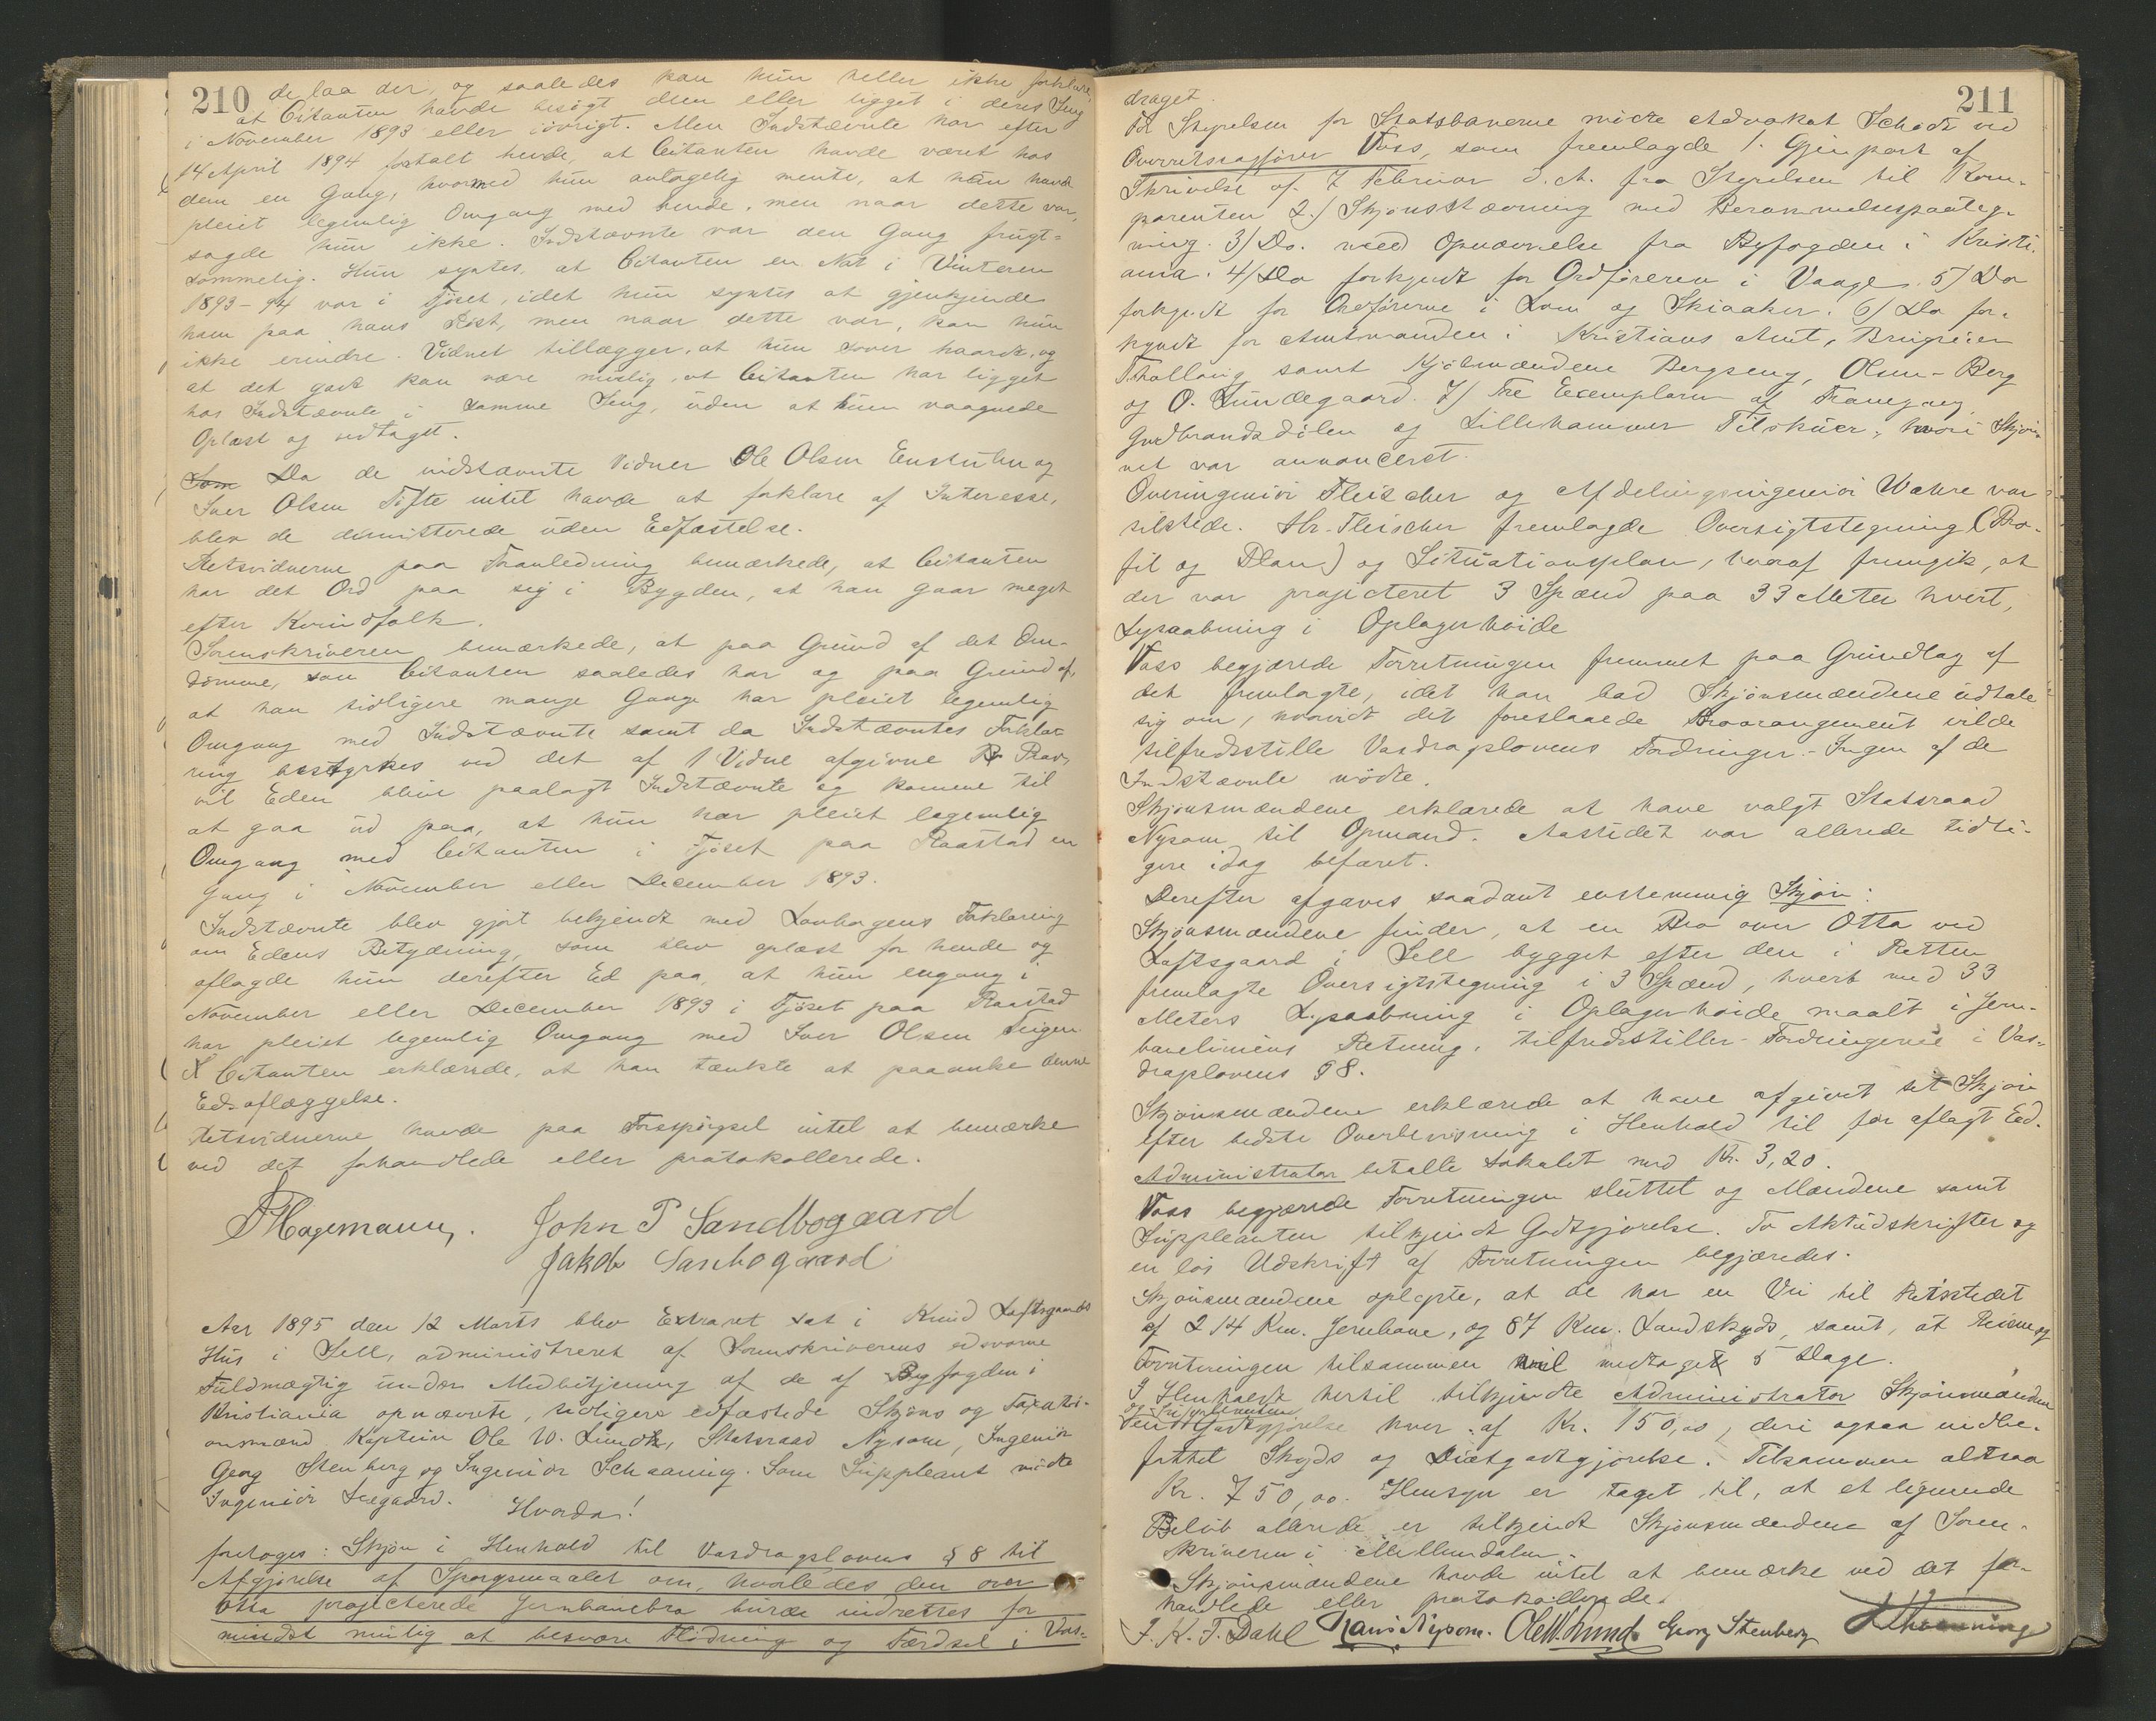 210
de laa der, og saaledes kan hun heller ikke forklare,
at Citanten havde besøgt dem eller ligget i deres Seng
i November 1893 eller iøvrigt. Men Indstævnte har efter
14 April 1894 fortalt hende, at Citanten havde været hos
dem en Gang, hvormed hun antagelig mente, at han havde
pleiet legemlig Omgang med hende, men naar dette var,
sagde hun ikke. Indstævnte var den Gang frugt-
sommelig. Hun syntes, at Citanten en Nat i Vinteren
1893-94 var i Fjøset, idet hun syntes at gjenkjende
ham paa hans Røst, men naar dette var, kan hun
ikke erindre. Vidnet tillægger, at hun sover haardt, og
at det godt kan være mulig, at Citanten har ligget
hos Indstævnte i samme Seng, uden at hun vaagnede
Oplæst og vedtaget.
Som Da de indstævnte Vidner Ole Olsen Enstulen og
Iver Olsen Tofte intet havde at forklare af Interesse,
blev de dimitterede uden Edfæstelse.
Retsvidnerne paa Foranledning bemærkede, at Citanten
har det Ord paa sig i Bygden, at han gaar meget
efter Kvindfolk.
Sorenskriveren bemærkede, at paa Grund af det Om-
dømme, som Citanten saaledes har og paa Grund af,
at han tidligere mange Gange har pleiet legemlig
Omgang med Indstævnte samt da Indstævntes Forkla-
ring bestyrkes ved det af 1 Vidne afgivne Prov,
vil Eden blive paalagt Indstævnte og komme til
at gaa ud paa, at hun har pleiet legemlig
Omgang med Citanten i Fjøset paa Raastad en
Gang i November eller December 1893.
Indstævnte blev gjort bekjendt med Lovbogens Forklaring
om Edens Betydning, som blev oplæst for hende og
aflagde hun derefter Ed paa, at hun engang i
November eller December 1893 i Fjøset paa Raastad
har pleiet legemlig Omgang med Iver Olsen Teigen
Citanten erklærede, at han tænkte at paaanke denne
Edsaflæggelse.
Retsvidnerne havde paa Forspørgsel intet at bemærke
ved det forhandlede eller protokollerede.
Hagemann. John P Sandbogaard
Jakob Sandbogaard
Aar 1895 den 12 Marts blev Extraret sat i Knud Loftsgaards
Hus i Sell, administreret af Sorenskriverens edsvorne
Fuldmægtig under Medbetjening af de af Byfogden i
Kristiania opnævnte, tidligere edfæstede Skjøns og Taxati-
onsmænd Kaptein Ole W. Lund, Statsraad Nysom, Ingeniør
Georg Stenberg og Ingeniør Schaaning. Som Suppleant mødte
Ingeniør Leegaard.
Hvorda!
foretoges: Skjøn i Henhold til Vasdragslovens § 8 til
Afgjørelse af Spørgsmaalet om, hvorledes den over
Otta projecterede Jernbanebro burde indrettes for
mindst mulig at besvære Flødning og Færdsel i Vas-
211
draget.
For Styrelsen for Statsbanerne mødte Advokat Schødt ved
Overretssagfører Voss, som fremlagde 1. Gjenpart af
Skrivelse af 7 Februar d.A. fra Styrelsen til Kom-
parenten 2.) Skjønsstævning med Berammelsespaateg-
ning. 3) Do. med Opnævnelse fra Byfogden i Kristi-
ania. 4) Do forkyndt for Ordføreren i Vaage. 5) Do
forkyndt for Ordførerne i Lom og Skiaaker. 6) Do for-
kyndt for Amtmanden i Kristians Amt, Brugseier
Thallaug samt Kjøbmændene Bergseng, Olsen-Berg
og O. Lundegaard. 7) Tre Exemplarer af Framgang,
Gudbrandsdølen og Lillehammer Tilskuer, hvori Skjøn-
net var annonceret.
Overingeniør Fleischer og Afdelingsingeniør Wahre var
tilstede. Hr. Fleischer fremlagde Oversigtstegning (Pro-
fil og Plan) og Situationsplan, hvoraf fremgik, at
der var projecteret 3 Spænd paa 33 Meter hvert,
Lysaabning i Oplagerhøide
Voss begjærede Forretningen fremmet paa Grundlag af
det fremlagte, idet han bad Skjønsmændene udtale
sig om, hvorvidt det foreslaaede Broarrangement vilde
tilfredsstille Vasdragslovens Fordringer. - Ingen af de
Indstævnte mødte.
Skjønsmændene erklærede at have valgt Statsraad
Nysom til Opmand. Aastedet var allerede tidli-
gere idag befaret.
Derefter afgaves saadant enstemmig Skjøn:
Skjønsmændene finder, at en Bro over Otta ved
Loftsgaard i Sell bygget efter den i Retten
fremlagte Oversigtstegning i 3 Spænd, hvert med 33
Meters Lysaabning i Oplagerhøide maalt i Jern-
banelinjens Retning, tilfredsstiller Fordringerne i Vas-
dragslovens § 8.
Skjønsmændene erklærede at have afgivet sit Skjøn
efter bedste Overbevisning i Henhold til før aflagt Eed.
Administrator betalte Lokalet med Kr. 3,20.
Voss begjærede Forretningen sluttet og Mændene samt
Suppleanten tilkjendt Godtgjørelse. To Aktudskrifter og
en løs Udskrift af Forretningen begjæredes.
Skjønsmændene oplyste, at de har en Vei til Retsstedet
af 214 Km. Jernbane, og 87 Km. Landskyds, samt, at Reisen og
Forretningen tilsammen vil medtaget 5 Dage.
I Henhold hertil tilkjendte Administrator Skjønsmændene
og Suppleanten
Godtgjørelse hver af Kr. 150,00, deri ogsaa indbe-
fattet Skyds og Diætgodtgjørelse. Tilsammen altsaa
Kr. 750,00. Hensyn er taget til, at et lignende
Beløb allerede er tilkjendt Skjønsmændene af Soren-
skriveren i Mellemdalen.
Skjønsmændene havde intet at bemærke ved det for-
handlede eller protokollerede.
J. K. T. Dahl Hans Nysom. Ole W. Lund. Georg Stenberg Schaanning